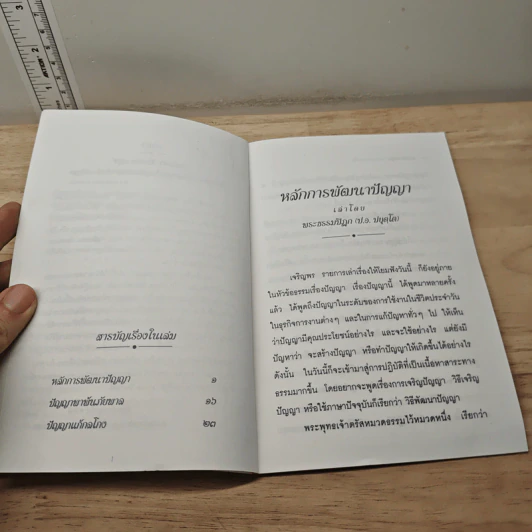 สารบัญเรื่องในเล่ม
หลักการพัฒนาปัญญา ๑
ปัญญาพาพ้นภัยพาล ๑๖
ปัญญาแก้กลโกง ๒๓
หลักการพัฒนาปัญญา
เล่าโดย
พระธรรมปิฎก (ป.อ. ปยุตฺโต)
เจริญพร รายการเล่าเรื่องให้โยมฟังวันนี้ ก็ยังอยู่ภาย
ในหัวข้อธรรมเรื่องปัญญา เรื่องปัญญานี้ ได้พูดมาหลายครั้ง
แล้ว ได้พูดถึงปัญญาในระดับของการใช้งานในชีวิตประจำวัน
ในธุรกิจการงานต่างๆ และในการแก้ปัญหาทั่วๆ ไป ให้เห็น
ว่าปัญญามีคุณประโยชน์อย่างไร และจะใช้อย่างไร แต่ยังมี
ปัญหาว่า จะสร้างปัญญา หรือทำปัญญาให้เกิดขึ้นได้อย่างไร
ดังนั้น ในวันนี้ก็จะเข้ามาสู่การปฏิบัติที่เป็นเนื้อหาสาระทาง
ธรรมมากขึ้น โดยอยากจะพูดเรื่องการเจริญปัญญา วิธีเจริญ
ปัญญา หรือใช้ภาษาปัจจุบันก็เรียกว่า วิธีพัฒนาปัญญา
พระพุทธเจ้าตรัสหมวดธรรมไว้หมวดหนึ่ง เรียกว่า